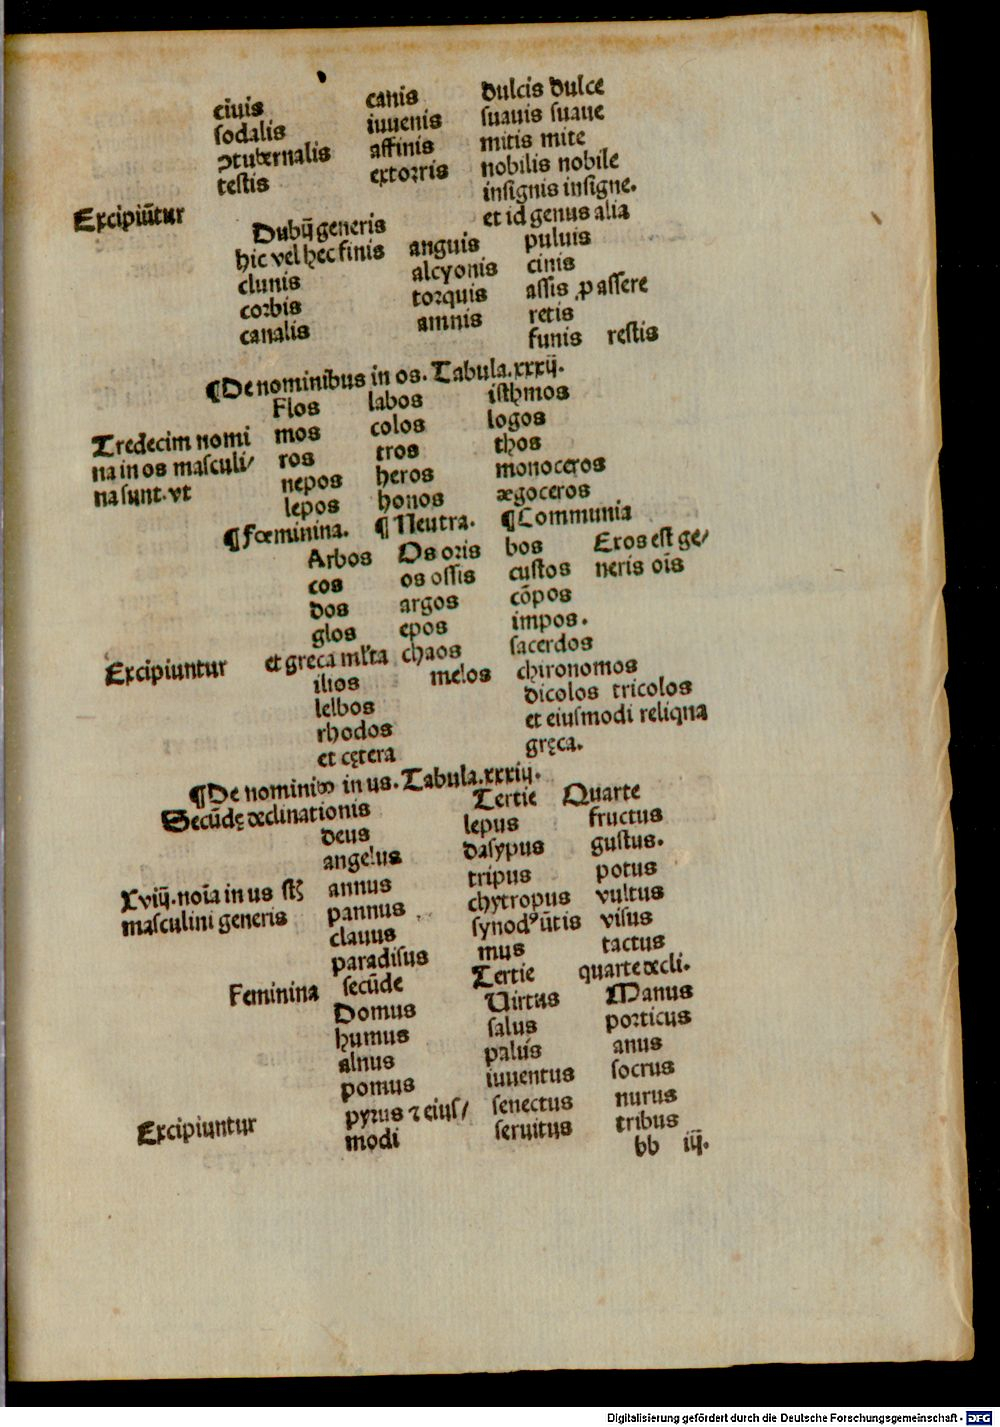 ciuis canis dulcis dulce
sodalis iuuenis suauis suaue
ↄtubernalis affinis mitis mite
testis extorris nobilis nobile
insignis insigne.
Excipiūtur et id genus alia
Dubij̄ generis
hic vel hęc finis anguis puluis
clunis alcyonis cinis
corbis torquis assis ꝓ assere
canalis amnis retis
funis restis
¶ De nominibus in os. Tabula.xxxij.
Flos labos isthmos
Tredecim nomi mos colos logos
na in os masculi/ ros tros thos
na sunt. vt nepos heros monoceros
lepos honos ægoceros
¶ fœminina. ¶ Neutra. ¶ Communia
Arbos Os oris bos Exos est ge/
cos os ossis custos neris oīs
dos argos cōpos
glos epos impos.
Excipiuntur et greca ml'ta chaos sacerdos
ilios melos chironomos
lelbos dicolos tricolos
rhodos et eiusmodi reliqna
et cętera gręca.
¶ De nominibꝰ in us. Tabula.xxxiij.
Secūdę declinationis Tertie Quarte
deus lepus fructus
angelus dasypus gustus.
Xviij. noīa in us sūt annus tripus potus
masculini generis pannus chytropus vultus
clauus synodꝰ ūtis visus
paradisus mus tactus
Feminina secūde Tertie quarte decli.
Domus Uirtus Manus
humus salus porticus
alnus palus anus
pomus iuuentus socrus
Excipiuntur pyrus ⁊ eius/ senectus nurus
modi seruitus tribus
bb iij.
Digitalisierung gefördert durch die Deutsche Forschungsgemeinschaft - DFG